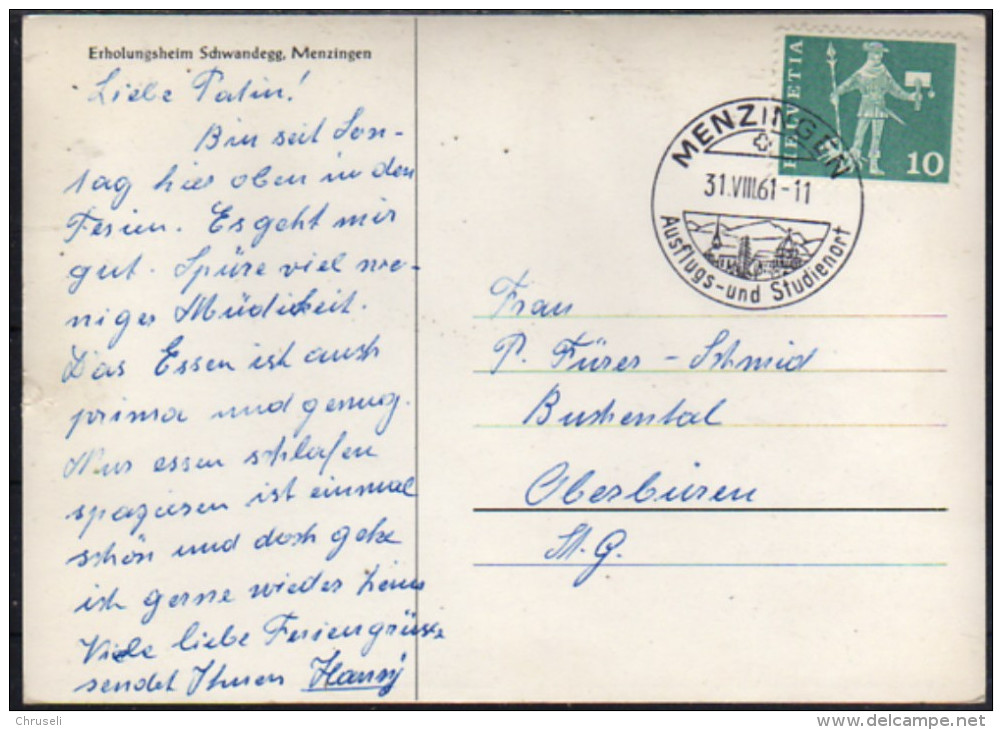 Erholungsheim Schwandegg, Menzingen
Liebe Patin!
Bin seit Son-
tag hier oben in den
Ferien. Es geht mir
gut. Spüre viel we-
niger Müdigkeit.
Das Essen ist auch
prima und genug.
Nur essen schlafen
spazieren ist einmal
schön und doch gehe
ich gerne wieder heim
Viele liebe Feriengrüsse
sendet Ihnen Hanny
HELVETIA
10
MENZINGEN
31.VIII.61-11
Ausflugs-und Studienort
Frau
P. Fürer - Schmid
Buchental
Oberbüren
St. G.
Chruseli
delcampe.net